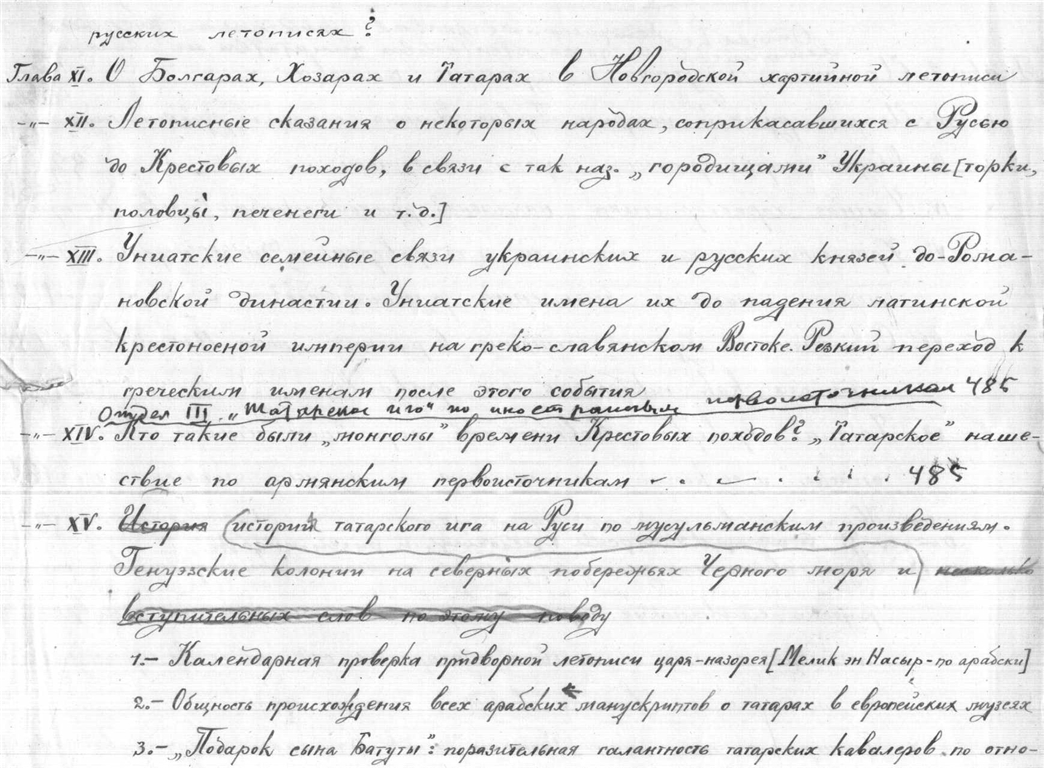 русских летописях?
Глава XI. О Болгарах, Хозарах и Татарах в Новгородской хартийной летописи
-„- XII. Летописные сказания о некоторых народах, соприкасавшихся с Русью
до Крестовых походов, в связи с так наз. „городищами" Украины [торки,
половцы, печенеги и т.д.]
-„- XIII. Униатские семейные связи украинских и русских князей до-Рома-
новской династии. Униатские имена их до падения латинской
крестоносной империи на греко-славянском Востоке. Резкий переход к
греческим именам после этого события
Отдел III. „Татарское иго" по иностранным первоисточникам 485
-„- XIV. Кто такие были „монголы" времени Крестовых походов? „Татарское" наше-
ствие по армянским первоисточникам . . . . . . . 485
-„- XV. История истории татарского ига на Руси по мусульманским произведениям.
Генуэзские колонии на северных побережьях Черного моря и несколько
вступительных слов по этому поводу
1.- Календарная проверка придворной летописи царя-назорея [Мелик эн Насыр - по арабски]
2.- Общность происхождения всех арабских манускриптов о татарах в европейских музеях
3.- „Подарок сына Батуты": поразительная галантность татарских кавалеров по отно-